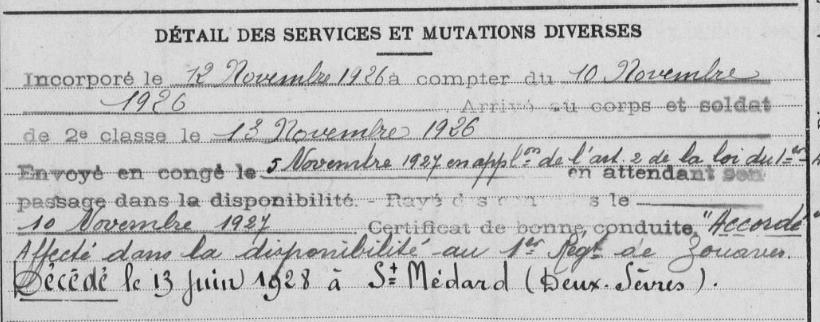 DÉTAIL DES SERVICES ET MUTATIONS DIVERSES
Incorporé le 12 Novembre 1926 à compter du 10 Novembre
1926 Arrivé au corps et soldat
de 2e classe le 13 Novembre 1926
Envoyé en congé le 5 Novembre 1927 en appl.on de l'art. 2 de la loi du 1er
en attendant son
passage dans la disponibilité. - Rayé le
10 Novembre 1927 Certificat de bonne conduite "Accordé"
Affecté dans la disponibilité au 1er Régt de Zouaves.
Décédé le 13 juin 1928 à St Médard (Deux-Sèvres).